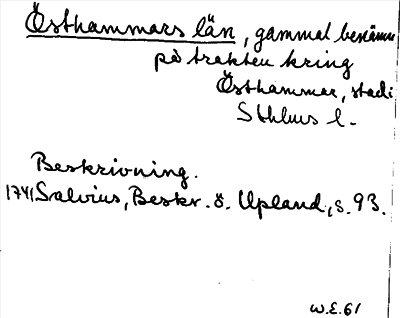 Östhammars län, gammal benämn
på trakten kring
Östhammar, stad i
Sthlms l.
Beskrivning.
1741 Salvius, Beskr. ö. Upland, s. 93.
W.E. 61